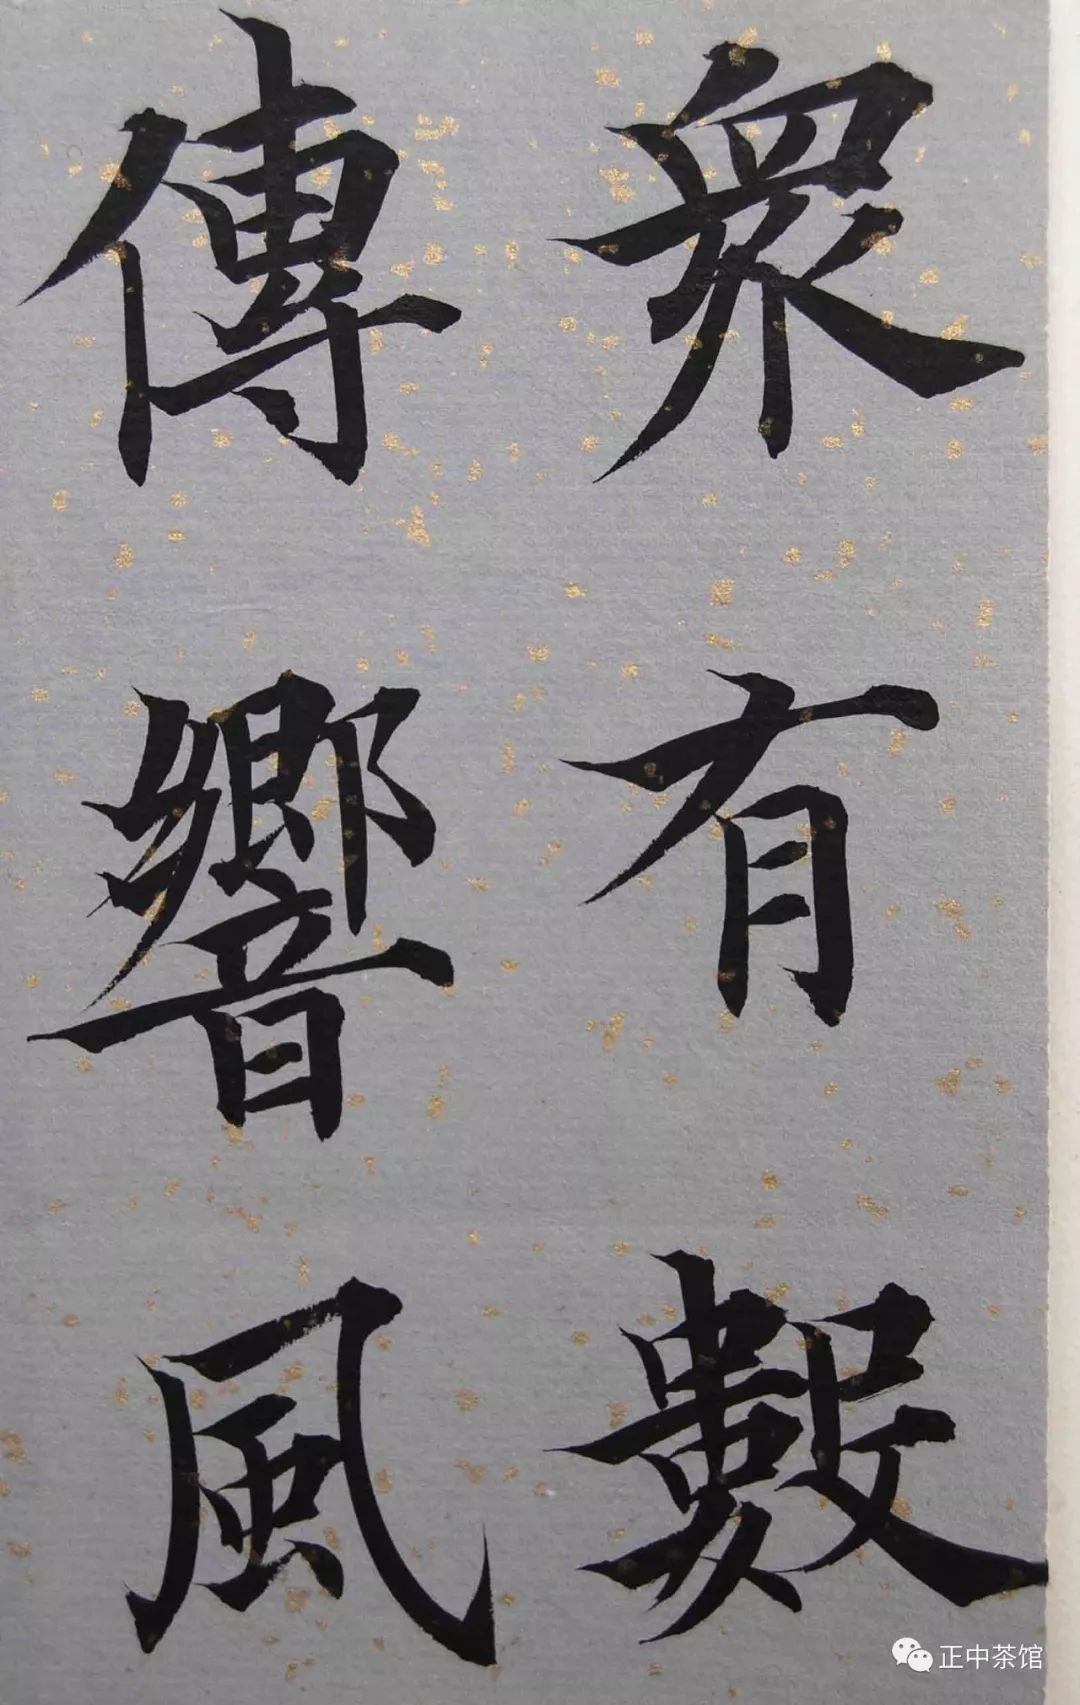 眾有數
傳響風
正中茶馆